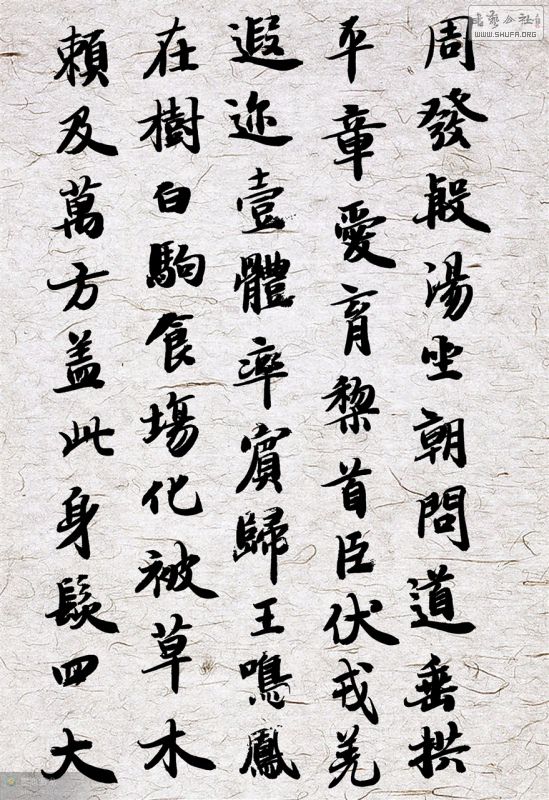 周發殷湯坐朝問道垂拱
平章愛育黎首臣伏戎羌
遐迩壹體率賓歸王鳴鳳
在樹白駒食場化被草木
賴及萬方盖此身髮四大
WWW.SHUFA.ORG